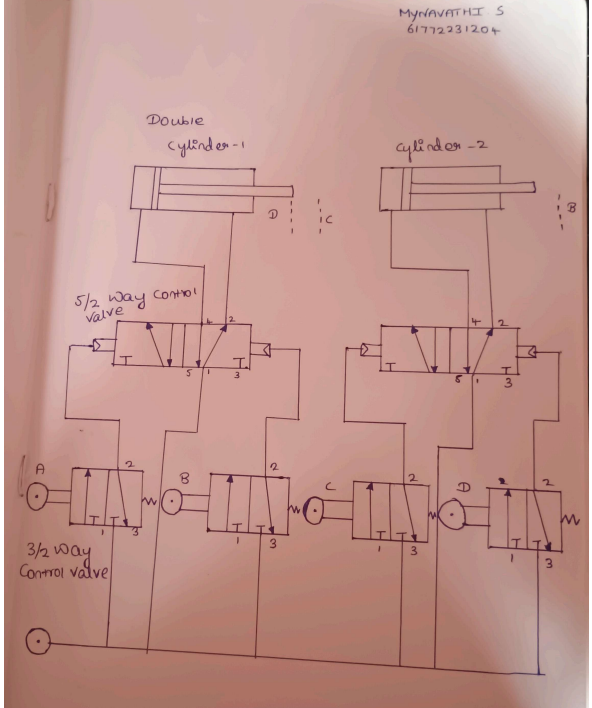 MYNAVATHI S
61772231204
Double
Cylinder-1
Cylinder-2
D
C
B
5/2 Way Control
Valve
4 2
5 1 3
4 2
5 1 3
A
2
1 3
B
2
1 3
C
2
1 3
D
2 2
1 3
3/2 Way
Control Valve